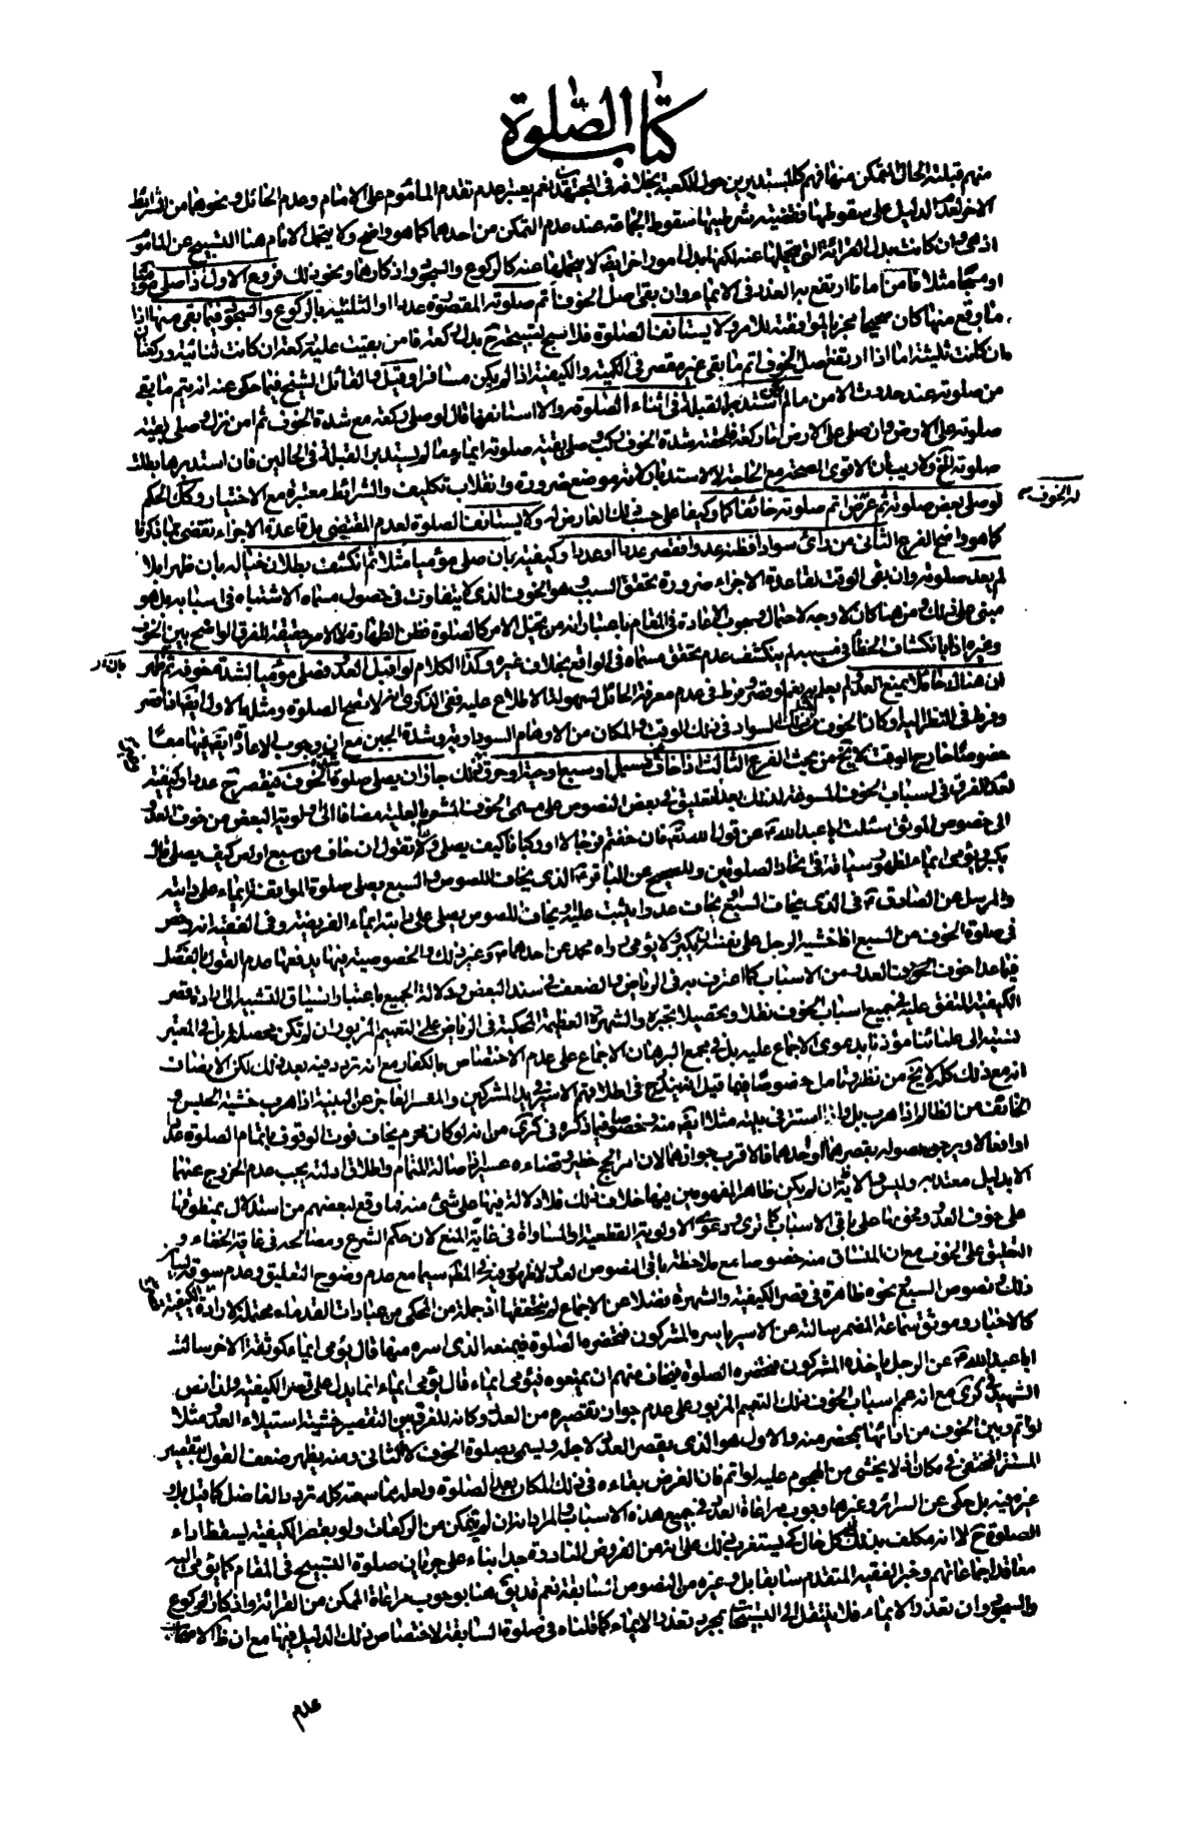 كتاب الصلوة
منهم قبلته الحال المتمكن منها فهم كالمستديرين حول الكعبة بخلافه في المجتهد نعم يعتبر عدم تقدم المأموم على الامام وعدم الحائل ونحوهما من الشرائط
الاخر لعدم الدليل على سقوطها فقضية شرطيتها سقوط الجماعة عند عدم التمكن من احدهما كما هو واضح ولا يتحمل الامام هنا التسبيح عن المأموم
اذ هو وان كانت بدل القرائة التي يتحملها عنه لكنها بدل امور اخر ايضا لا يتحملها عنه كالركوع والسجود واذكارهما ونحو ذلك فروع الاول اذا صلى موميا
او مسبحا مثلا فامن امانا ارتفع به العذر في الايماء وان بقي اصل الخوف اتم صلوته المقصورة عددا او الثلثية بالركوع والسجود فيما بقي منها اذا
ما وقع منها كان صحيحا مجزيا لموافقته للامر ولا يستأنف الصلوة فلا سبح لتسبيحة ح بدل ركعة فامن بقيت عليه ركعة ان كانت ثنائية وركعتان
ان كانت ثلثية اما اذا ارتفع اصل الخوف اتم ما بقي غير مقصر في الكمية والكيفية اذا لم يكن مسافرا وقيل والقائل الشيخ فيما حكي عنه انه يتم ما بقي
من صلوته عند حدوث الامن ما لم يستدبر القبلة في اثناء الصلوة والا استأنفها قال لو صلى ركعة مع شدة الخوف ثم امن نزل وصلى بقية
صلوته على الارض وان صلى على الارض امنا ركعة فلحقته شدة الخوف ركب وصلى بقية صلوته ايماء ما لم يستدبر القبلة في الحالين فان استدبرها بطلت
صلوته الخ ولا ريب ان الاقوى الصحة مع الحاجة الى الاستدبار لانه موضع ضرورة وانقلاب تكليف والشرائط معتبرة مع الاختيار وكذا الحكم
لو صلى بعض صلوته ثم عرض له الخوف اتم صلوته خائفا كما وكيفا على حسب ذلك العارض له ولا يستأنف الصلوة لعدم المقتضي بل قاعدة الاجزاء تقتضي ما ذكرنا
كما هو واضح الفرع الثاني من رأى سوادا فظنه عدوا فقصر عددا او عددا وكيفية بان صلى موميا مثلا ثم انكشف بطلان خياله بان ظهر ابلا
لم يعد صلوته وان بقي الوقت لقاعدة الاجزاء ضرورة تحقق السبب وهو الخوف الذي لا يتفاوت في حصول مسماه الاشتباه في اسبابه بل هو
مبنى على ذلك ومن هنا كان لا وجه لاحتمال وجوب الاعادة في المقام باعتبار انه من تخيل الامر كالصلوة بظن الطهارة لا الامر حقيقة للفرق الواضح بين الخوف
وغيره اذ بانكشاف الخطأ في سببه لم ينكشف عدم تحقق مسماه في الواقع بخلاف غيره وكذا الكلام لو اقبل العدو فصلى موميا لشدة خوفه ثم ظهر
ان هناك حائلا يمنع العدو لم يعلم به نعم لو قصر وفرط في عدم معرفة الحائل لسهولة الاطلاع عليه ففي الذكرى انه لا تصح الصلوة ومثله الاول ايضا اذا قصر
وفرط في النظر اليه وكان الخوف من ذلك السواد في ذلك الوقت والمكان من الاوهام السوداوية وشدة الجبن مع ان وجوب الاعادة ايضا فيهما معا
خصوصا خارج الوقت لا يخ من بحث الفرع الثالث اذا خاف من سيل او سبع او حية او حرق او غير ذلك جاز ان يصلي صلوة شدة الخوف فيقصر ح عددا وكيفية
لعدم الفرق في اسباب الخوف المسوغة لذلك بعد التعليق في بعض النصوص على مسمى الخوف المشعر بالعلية مضافا الى تسوية البعض من خوف العدو
الى خصوص الموثق سئلت ابا عبد الله ع عن قول الله تعالى فان خفتم فرجالا او ركبانا كيف يصلي وما تقول ان خاف من سبع او لص كيف يصلي قال
يكبر ويومي ايماء لظهور سياقه في اتحاد الصلوتين والصحيح عن الباقر ع الذي يخاف اللصوص والسبع يصلي صلوة المواقفة ايماء على دابته
والمرسل عن الصادق ع في الذي يخاف السبع او يخاف عدوا يثب عليه او يخاف اللصوص يصلي على دابته ايماء الفريضة وفي الفقيه انه رخص
في صلوة الخوف من السبع اذا خشيه الرجل على نفسه ان يكبر ولا يومي رواه محمد عن احدهما ع وغير ذلك والخصوصية فيها يدفعها عدم القول بالفصل
فيما عدا خوف العدو من الاسباب كما اعترف به في الرياض والضعف في سند البعض ودلالة الجميع باعتبار انسياق التشبيه الى ارادة قصر
الكيفية المتفق عليه في جميع اسباب الخوف نقلا وتحصيلا ينجبر بالشهرة العظيمة المحكية في الرياض على التعميم المزبور ان لم تكن محصلة بل في المعتبر
نسبته الى علمائنا مؤذنا بدعوى الاجماع عليه بل في مجمع البرهان الاجماع على عدم الاختصاص بالكفار مع انه تردد فيه بعد ذلك لكن الانصاف
انه مع ذلك كله لا يخ من نظر وتامل خصوصا فيما قيل انه يندرج في اطلاقهم الاسير في يد المشركين والمعسر العاجز عن البينة اذا هرب خشية الحبس و
الخائف من الظالم اذا هرب بل واذا استتر في بلده مثلا ايضا منه وخصوصا فيما ذكره في كرى من انه لو كان محرم يخاف فوت الوقوف باتمام الصلوة عددا
او افعالا ويرجو حصوله بقصرهما او احدهما فالاقرب جوازهما لان امر الحج خطير وقضاءه عسير اذ اصالة التمام واطلاق ادلته يجب عدم الخروج عنهما
الا بدليل معتد به وليس والاية ان لم يكن ظاهر المفهومين فيها خلاف ذلك فلا دلالة فيها على شئ منه فما وقع لبعضهم من استدلال بمنطوقها
على خوف العدو وفحويها على باقي الاسباب كما ترى ودعوى الاولوية القطعية او المساواة في غاية المنع لان حكم الشرع ومصالحه في غاية الخفاء و
التعليق على الخوف مع ان المنساق منه خصوصا مع ملاحظة باقي النصوص العدو لا ظهور فيه في المط سيما مع عدم وضوح التعليق وعدم سوقه لبيان
ذلك ونصوص السبع ونحوه ظاهرة في قصر الكيفية والشهرة فضلا عن الاجماع لم نتحققها اذ جملة من المحكي من عبارات القدماء محتملة لارادة الكيفية
كالاخبار وموثق سماعة المضمر سالته عن الاسير ياسره المشركون فتحضره الصلوة فيمنعه الذي اسره منها قال يومي ايماء كموثقه الاخر سالت
ابا عبد الله ع عن الرجل ياخذه المشركون فتحضره الصلوة فيخاف منهم ان يمنعوه فيومي ايماء قال يومي ايماء انما يدل على قصر الكيفية ولذا نص
الشهيد في كرى مع انه عمم اسباب الخوف ذلك التعميم المزبور على عدم جواز تقصيره من العدد وكانه للفرق بين التقصير خشية استيلاء العدو مثلا
لو اتم وبين الخوف من اداءها بمحضر منه والاول هو الذي يقصر العدد لاجله ويسمى بصلوة الخوف لا الثاني ومنه يظهر ضعف القول بتقصير
المستتر المختفي في مكان لا يخشى من الهجوم عليه لو اتم فان الفرض بقاءه في ذلك المكان بعد الصلوة ولعله لما سمعته كله تردد الفاضل كما قيل بل و
غيره فيه بل حكى عن السرائر وغيرها وجوب مراعاة العدد في جميع هذه الاسباب والمراد انه ان لم يتمكن من الركعات ولو بقصر الكيفية يسقط اداء
الصلوة ح لا انه مكلف بذلك على كل حال كي يستغرب ذلك على انه من الفروض النادرة جدا بناء على جريان صلوة التسبيح في المقام كما يومي اليه
معاقد اجماعاتهم وخبر الفقيه المتقدم سابقا بل وغيره من النصوص السابقة نعم قد يق هنا بوجوب مراعاة الممكن من القرائة واذكار الركوع
والسجود وان تعذر الايماء فلا ينتقل الى التسبيحات بمجرد تعذر الايماء كما قلناه في صلوة السابقة لاختصاص ذلك الدليل فيها مع ان ظ الاصحاب
عدم